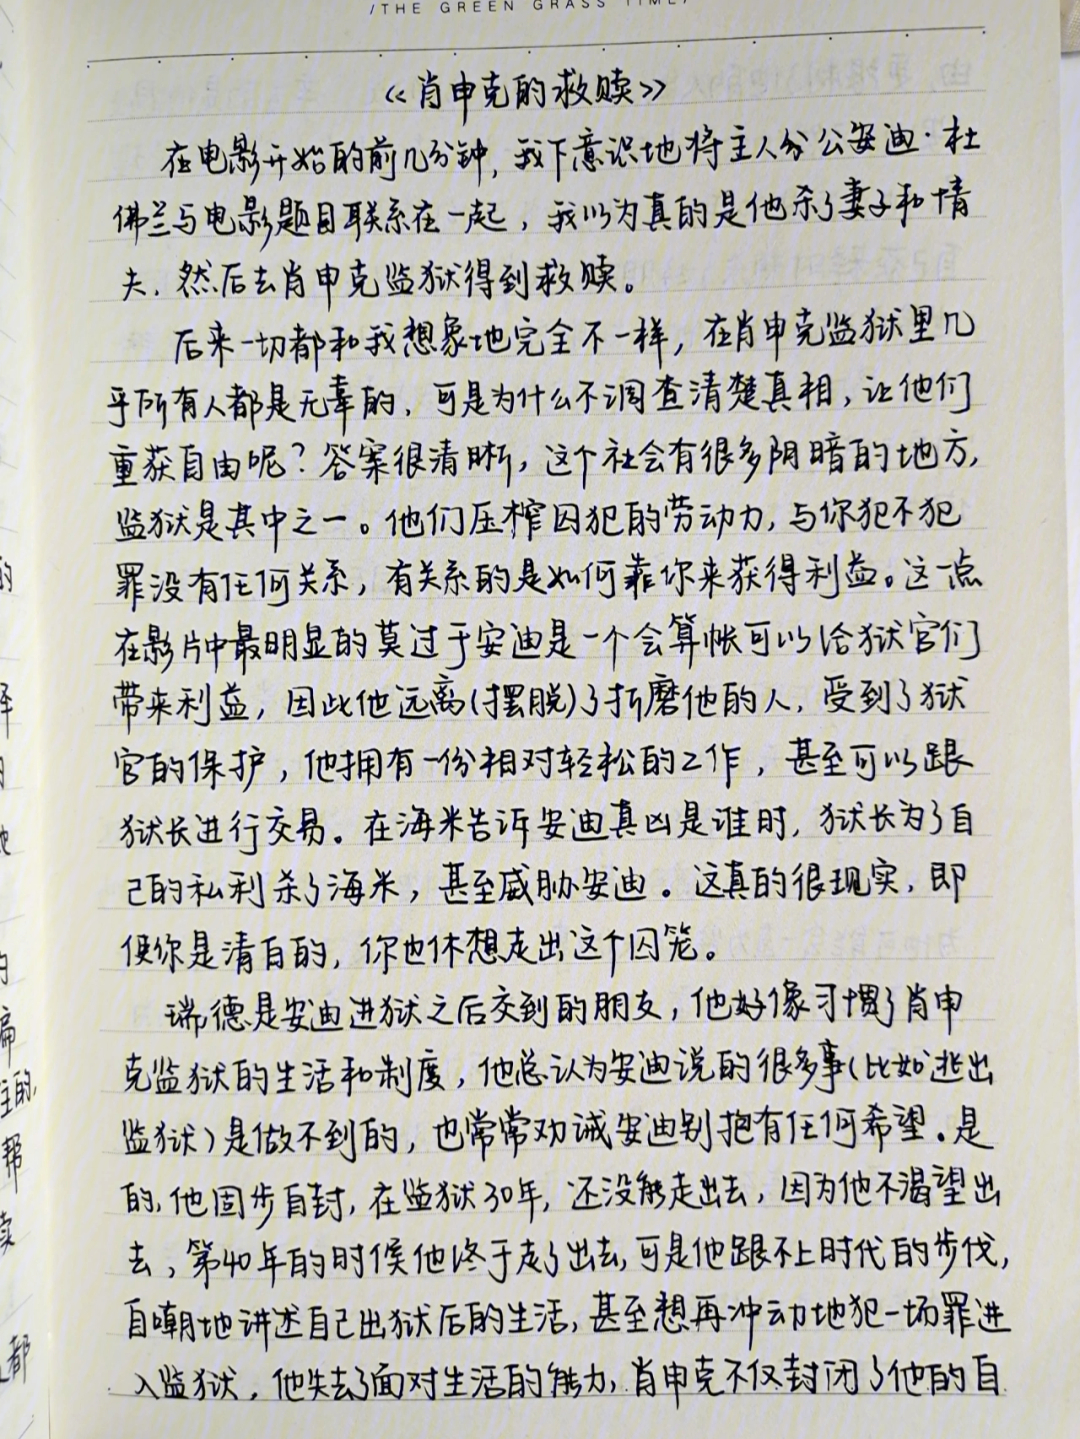 /THE GREEN GRASS TIME/
《肖申克的救赎》
在电影开始的前几分钟，我下意识地将主人公安迪·杜
佛兰与电影题目联系在一起，我以为真的是他杀了妻子和情
夫，然后去肖申克监狱得到救赎。
后来一切都和我想象地完全不一样，在肖申克监狱里几
乎所有人都是无辜的，可是为什么不调查清楚真相，让他们
重获自由呢？答案很清晰，这个社会有很多阴暗的地方，
监狱是其中之一。他们压榨囚犯的劳动力，与你犯不犯
罪没有任何关系，有关系的是如何靠你来获得利益。这一点
在影片中最明显的莫过于安迪是一个会算帐可以给狱官们
带来利益，因此他远离(摆脱)了折磨他的人，受到了狱
官的保护，他拥有一份相对轻松的工作，甚至可以跟
狱长进行交易。在海米告诉安迪真凶是谁时，狱长为了自
己的私利杀了海米，甚至威胁安迪。这真的很现实，即
便你是清白的，你也休想走出这个囚笼。
瑞德是安迪进狱之后交到的朋友，他好像习惯了肖申
克监狱的生活和制度，他总认为安迪说的很多事(比如逃出
监狱)是做不到的，也常常劝诫安迪别抱有任何希望。是
的，他固步自封，在监狱30年，还没能走出去，因为他不渴望出
去，第40年的时候他终于走了出去，可是他跟不上时代的步伐，
自嘲地讲述自己出狱后的生活，甚至想再冲动地犯一场罪进
入监狱，他失去了面对生活的能力，肖申克不仅封闭了他的自